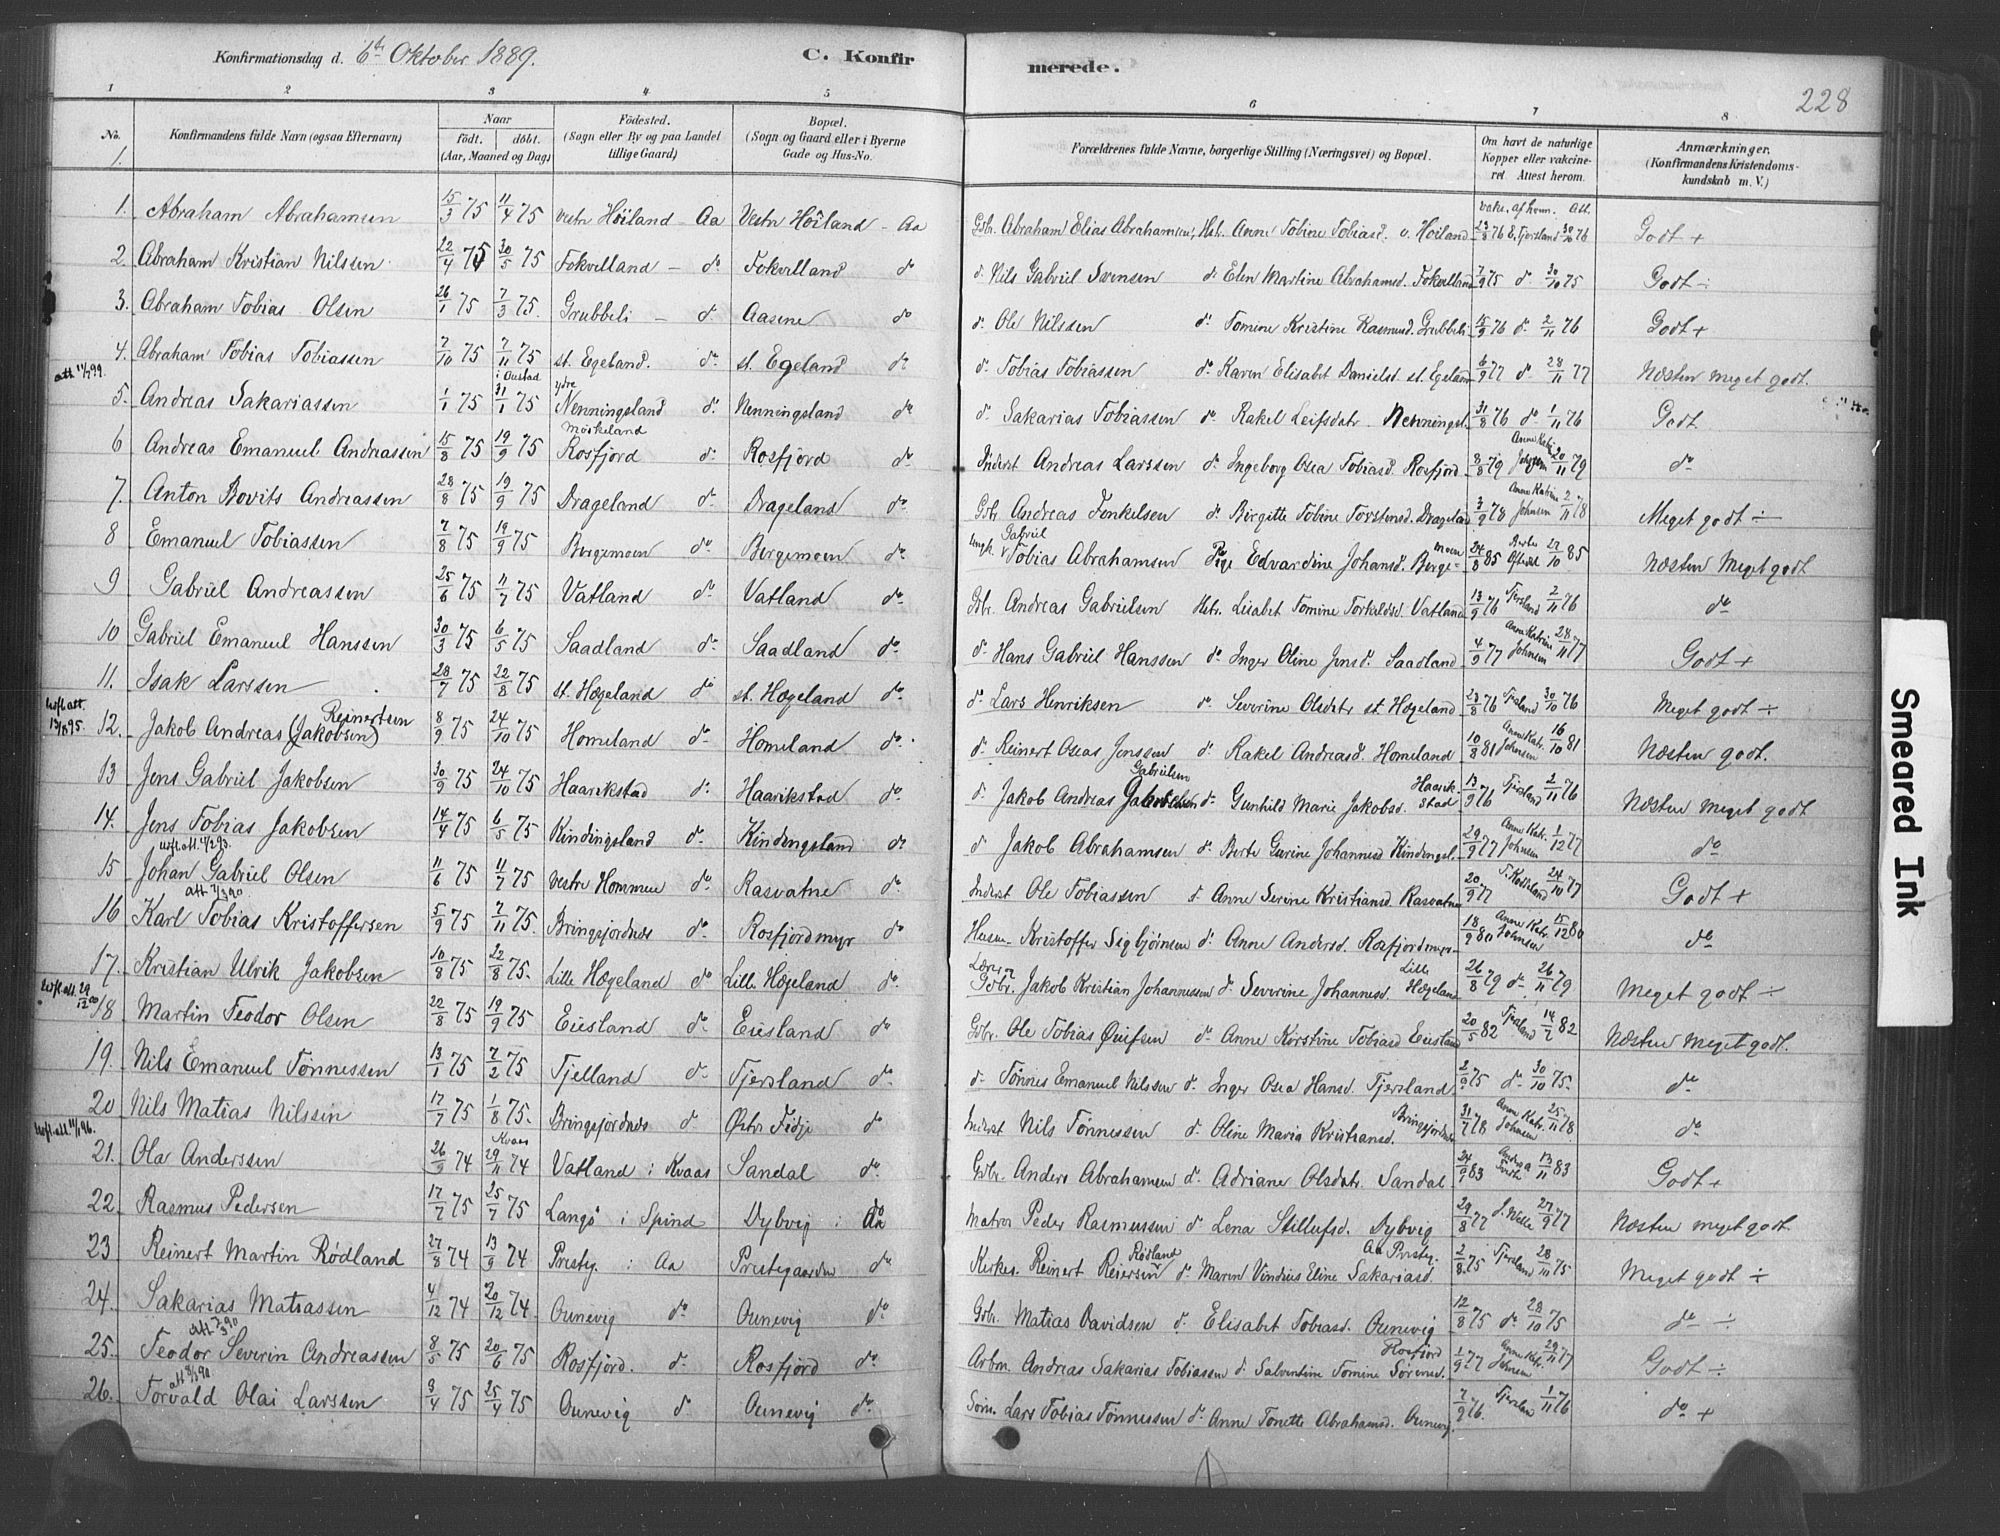 Konfirmationsdag d. 6te Oktober 1889. C. Konfirmerede. 228
1 2 3 4 5 6 7 8
No. Konfirmandens fulde Navn (ogsaa Efternavn) Naar födt. döbt. (Aar, Maaned og Dag) Födested. (Sogn eller By og paa Landet tillige Gaard) Bopæl. (Sogn og Gaard eller i Byerne Gade og Hus-No. Forældrenes fulde Navne, borgerlige Stilling (Næringsvei) og Bopæl. Om havt de naturlige Kopper eller vakcineret. Attest herom. Anmærkninger. (Konfirmandens Kristendomskundskab m. V.)
1. vakc. af hvem. Att.
1. Abraham Abrahamsen 15/3 75 11/4 75 Vestr Höiland - Aa Vestr Höiland - Aa Gbr. Abraham Elias Abrahamsen, Hstr. Anne Tobine Tobiasd. v. Höiland 23/8 76 E. Tjersland 30/10 76 Godt +
2. Abraham Kristian Nilssen 22/4 75 30/5 75 Fokvilland - do Fokvilland do d. Nils Gabriel Svensen do Elen Martine Abrahamsd. Fokvilland 7/9 75 do 30/10 75 Godt ÷
3. Abraham Tobias Olsen 26/1 75 7/3 75. Grubbeli - do Aasene do d. Ole Nilssen do Tomine Kristine Rasmusd. Grubbeli 15/9 76 do 2/11 76 Godt +
4. Abraham Tobias Tobiassen 7/10 75 7/11 75 st. Egeland. do st. Egeland do d. Tobias Tobiassen do Karen Elisabet Danielsd. st. Egeland 6/9 77 do 28/11 77 Næsten meget godt.
att 11/7 99.
5. Andreas Sakariassen 1/1 75 31/1 75 ydre Nenningsland do Nenningsland do d. Sakarias Tobiassen do Rakel Leifsdatr. Nenningsl. 31/8 76 do 1/11 76 Godt
6 Andreas Emanuel Andreassen 15/8 75 19/9 75 Möskeland Rosfjord do Rosfjord do Inderst Andreas Larssen do Ingeborg Osea Tobiasd. Rosfjord 8/8 79 Anne Katrine Johnsen 20/11 79 do
7. Anton Bovits Andreassen 28/8 75 19/9 75 Drageland do Drageland do Gbr. Andreas Tenkelsen do Birgitte Tobine Torstensd. Drageland 3/9 78 Anne Katrine Johnsen 2/11 78 Meget godt ÷
8 Emanuel Tobiassen 7/8 75 19/9 75 Bergemoen do Bergemoen do Ungk. Tobias Gabriel Abrahamsen Pige Edvardine Johansd. Bergemoen 24/8 85 Berte Oftedal 27/10 85 Næsten Meget godt
9 Gabriel Andreassen 25/6 75 11/7 75 Vatland do Vatland do Gbr. Andreas Gabrielsen Hstr. Lisabet Tomine Torkildsd. Vatland 13/9 76 Tjersland 2/11 76 do
10 Gabriel Emanuel Hanssen 30/3 75 6/5 75 Saadland do Saadland do d. Hans Gabriel Hanssen do Inger Oline Jensd. Saadland 4/9 77 Anne Katrine Johnsen 28/11 77 Godt +
11. Isak Larssen 28/7 75 22/8 75 st. Hægeland do st. Hægeland do d. Lars Henriksen do Severine Olsdatr st. Hægeland 23/8 76 Tjersland 30/10 76 Meget godt ÷
Udfl. att. 13/8 95.
12. Jakob Andreas (Jakobsen) Reinertsen 8/9 75 24/10 75 Homeland do Homeland do d. Reinert Oseas Jenssen do Rakel Andreasd. Homeland 10/8 81 Anne Katr. Johnsen 16/10 81 Næsten godt.
13 Jens Gabriel Jakobsen 30/9 75 24/10 75 Haarikstad do Haarikstad do d. Jakob Andreas Gabrielsen do Gunhild Marie Jakobsd. Haarikstad 13/9 76 Tjersland 2/11 76 Næsten meget godt
14. Jens Tobias Jakobsen 14/4 75 6/5 75 Kindingsland do Kindingsland do d. Jakob Abrahamsen do Berte Gurine Johannesd. Kindingsl. 29/9 77 Anne Katr. Johnsen 1/12 77 do
15 Johan Gabriel Olsen 11/6 75 11/7 75 vestre Hommen do Rasvatne do Inderst Ole Tobiassen do Anne Serine Kristiansd. Rasvatne 20/9 77 24/10 77 Godt +
att 7/3 90
16 Karl Tobias Kristoffersen 5/9 75 7/11 75. Bringsfjordnes do Rosfjordmyr do Husm. Kristoffer Sigbjørnsen do Anne Andersd. Rosfjordmyr 18/9 80 Anne Katr. Johnsen 15/12 80 do
17. Kristian Ulrik Jakobsen 10/8 75 22/8 75. Lille Hægeland do Lille Hægeland do Gbr. Jakob Kristian Johannessen do Severine Johannesd. Lille Hægeland 26/8 79 do 26/11 79 Meget godt ÷
Udfl. att. 29/12 00
18 Martin Teodor Olsen 22/8 75 19/9 75 Eiesland do Eiesland do Gbr. Ole Tobias Øuifsen do Anne Kirstine Tobiasd Eiesland 20/5 82 Tjersland 14/7 82 Næsten meget godt.
19. Nils Emanuel Tönnessen 13/1 75 7/2 75 Tjelland do Tjersland do d. Tönnes Emanuel Nilssen do Inger Osea Hansd. Tjersland 2/9 75 do 30/10 75. do
20 Nils Matias Nilssen 17/7 75 1/8 75. Bringsfjordnes do Østr. Fidje do Inderst Nils Tönnessen do Oline Maria Kristiansd. Bringsfjordnes 31/7 78 Anne Katr. Johnsen 25/11 78 do
Udfl. att. 11/1 96.
21. Ola Anderssen 26/9 74 Kvaas 29/11 74 Vatland i Kvaas Sandal do Gbr. Anders Abrahamsen do Adriane Olsdatr. Sandal 24/9 83 13/11 83 Godt +
22. Rasmus Pedersen 17/7 75 25/7 75 Langö i Spind Dybvig i Aa Matros Peder Rasmussen do Lena Stillufsd. Dybvig 29/8 77 27/9 77 Næsten meget godt.
23 Reinert Martin Rödland 27/8 74 13/9 74 Presteg. i Aa Prestegaarden do Kirkes. Reinert Reiersen Rödland do Maren Vindius Eline Sakariasd. Aa Presteg. 2/8 75 Tjersland 28/10 75 Meget godt ÷
24. Sakarias Matiassen 4/12 74 20/12 74 Ounevig do Ounevig do Gbr. Matias Davidsen do Elisabet Tobiasd. Ounevig 12/8 75 do 28/10 75 do ÷
att 7/3 90
25. Teodor Severin Andreassen 8/5 75 20/6 75 Rosfjord. do Rosfjord do Arbm. Andreas Sakarias Tobiassen do Salventine Tomine Sörensd. Rosfjord 1/9 77 Anne Katr. Johnsen 29/11 77 Godt ÷
26. Torvald Olai Larssen 9/4 75 25/4 75 Ounevig do Ounevig do Söm. Lars Tobias Tönnessen do Anne Tonette Abrahamsd. Ounevig 7/9 76. Tjersland 1/11 76 do +
Smeared Ink